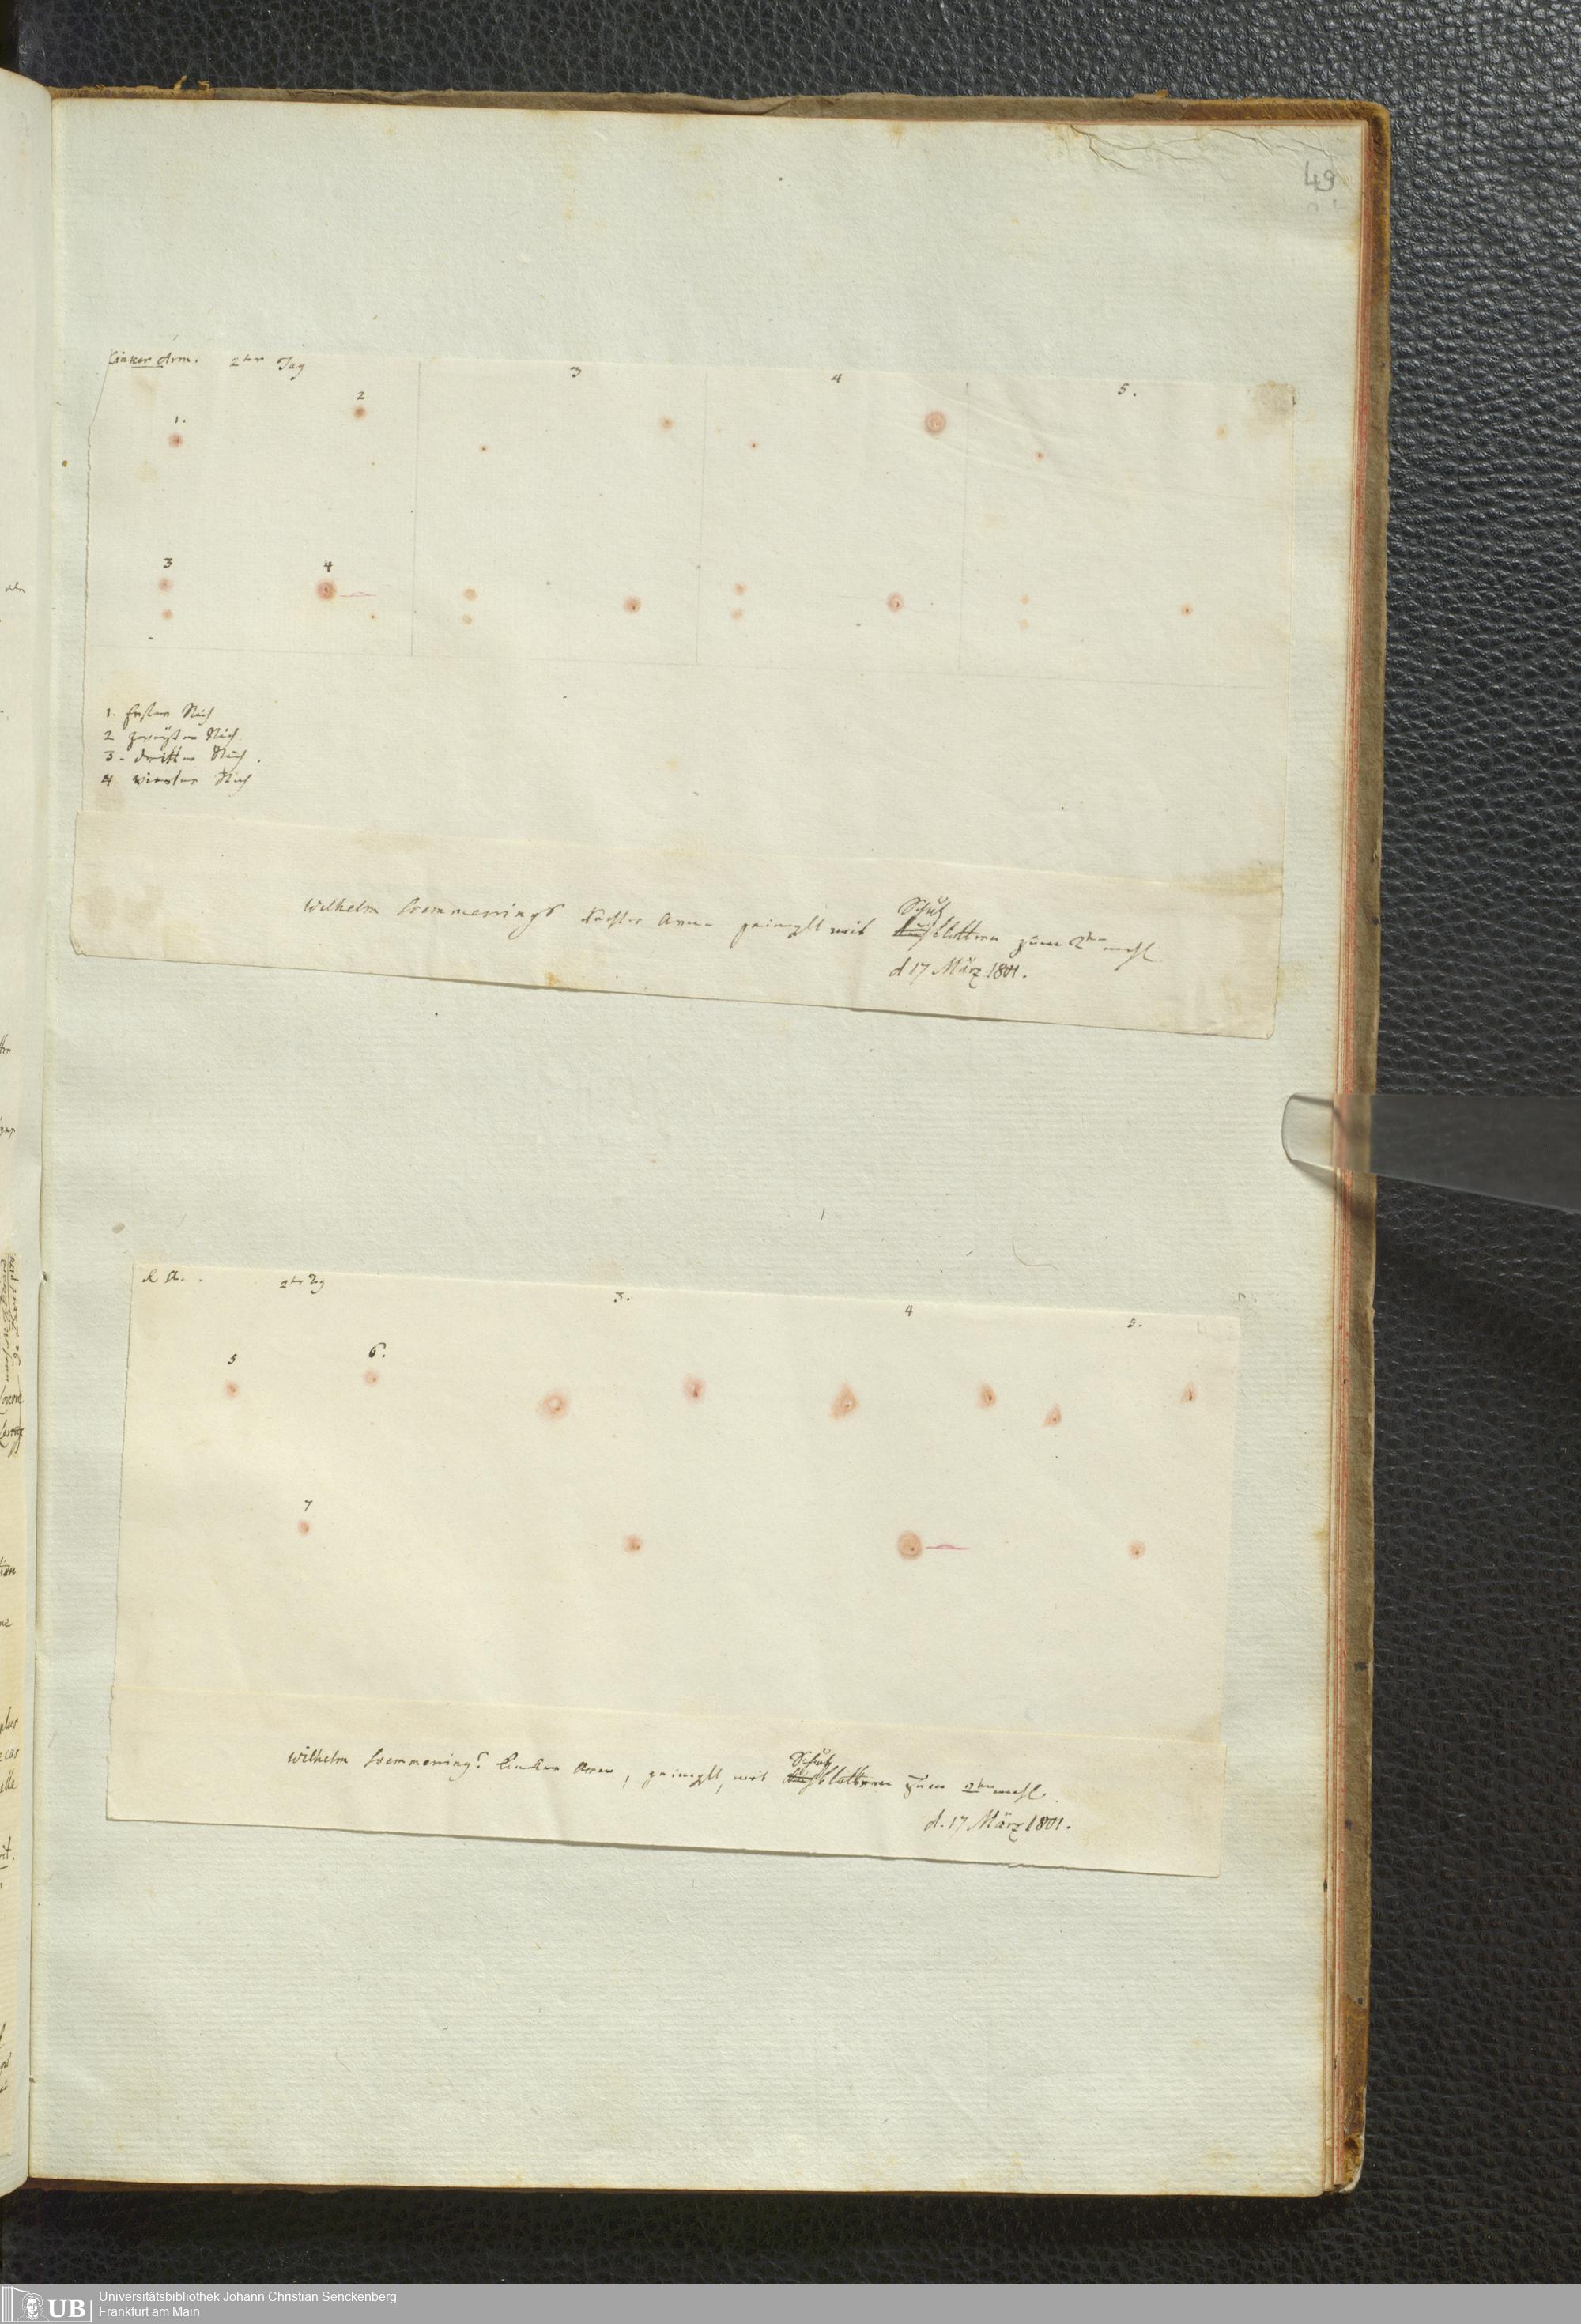 49
Linker Arm. 2ter Tag 3 4 5.
1. 2
3 4
1. Erster Stich
2 zweyter Stich
3. dritter Stich.
4 vierter Stich
Wilhelm Soemmerrings Rechter Arm geimpft mit Schutz
Kuhblattern zum 2ten mahl
d 17 März 1801.
R A. 2ter Tag 3. 4 5.
5 6.
7
Wilhelm Soemmerrings Linker Arm, geimpft, mit Schutz
Kuhblattern zum 2ten mahl.
d. 17 März 1801.
UB Universitätsbibliothek Johann Christian Senckenberg
Frankfurt am Main